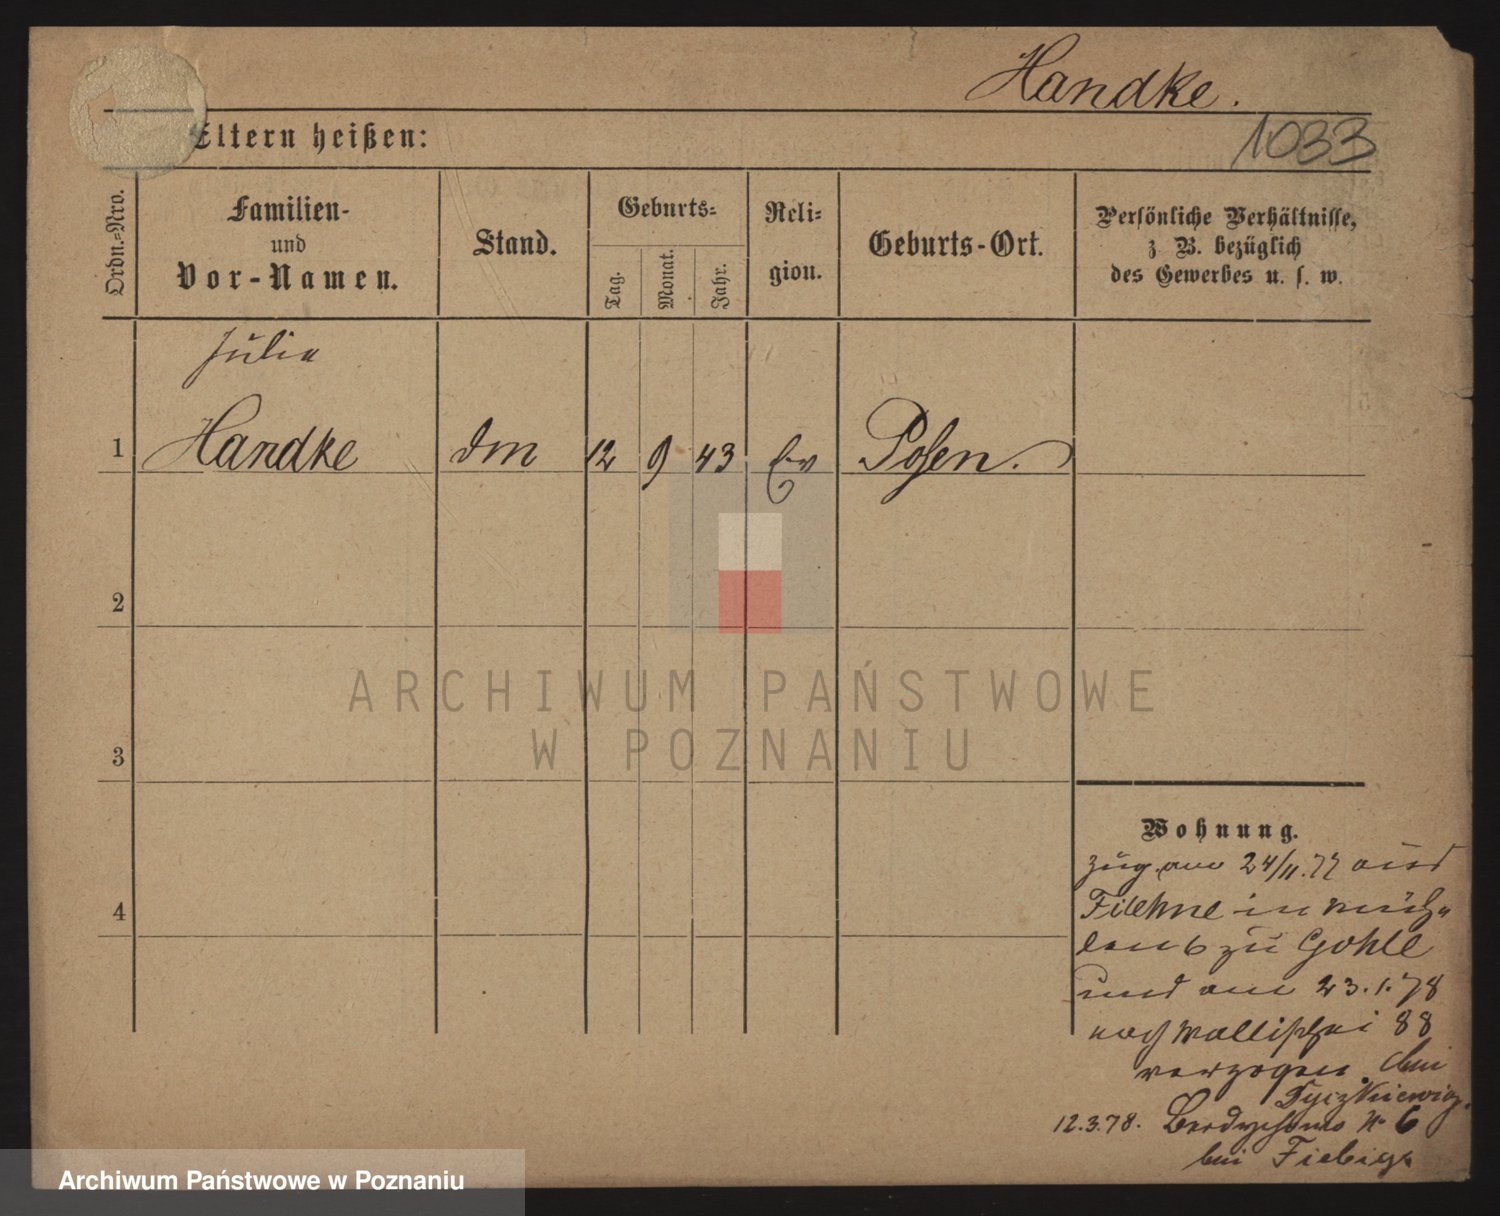 Handke.
1033
Eltern heißen:
Ordn.=Nro.
Familien-
und
Vor-Namen.
Stand.
Geburts=
Tag.
Monat.
Jahr.
Reli=
gion.
Geburts-Ort.
Persönliche Verhältnisse,
z. B. bezüglich
des Gewerbes u. s. w.
Julie
1 Handke dm 12 9 43 Ev Posen.
2
ARCHIWUM PAŃSTWOWE
W POZNANIU
3
Wohnung.
zug. am 24/11.77 aus
Filehne in Müh-
len 6 zu Gohle
und am 23.1.78
nach Wallischei 88
verzogen. bei
Tyczkiewicz.
12.3.78. Berdychowo N. 6
bei Fiebig.
4
Archiwum Państwowe w Poznaniu